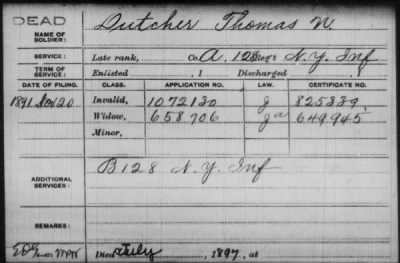 DEAD
NAME OF SOLDIER: Dutcher Thomas N
SERVICE: Late rank, Co. A, 128 Reg't N.Y. Inf
TERM OF SERVICE: Enlisted , 1 Discharged , 1
DATE OF FILING. CLASS. APPLICATION NO. LAW. CERTIFICATE NO.
1891 Nov 20 Invalid, 1072130 J 825339.
Widow, 658706 649945
Minor,
ADDITIONAL SERVICES: B 128 N.Y. Inf
REMARKS:
Died July , 1897, at